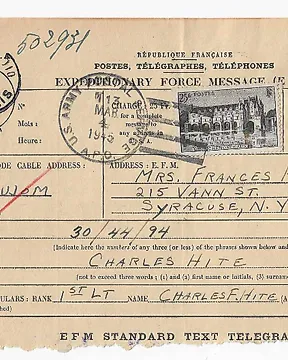 502931
RÉPUBLIQUE FRANÇAISE
POSTES, TÉLÉGRAPHES, TÉLÉPHONES
EXPEDITIONARY FORCE MESSAGE (E
Mots:
Heure:
CHARGE: 25
for a complete
message to
any address in
U.S. ARMY POSTAL
MAR
1945
A.P.O.
ODE CABLE ADDRESS:
ADDRESS: E.F.M.
MRS. FRANCES H
215 VANN ST.
SYRACUSE, N.Y
30/44/94
(Indicate here the numbers of any three (or less) of the phrases shown below and
CHARLES HITE
(not to exceed three words; (1) and (2) first name or initials, (3) surname
ULARS: RANK 1ST LT NAME CHARLES F. HITE (A
E F M STANDARD TEXT TELEGRA